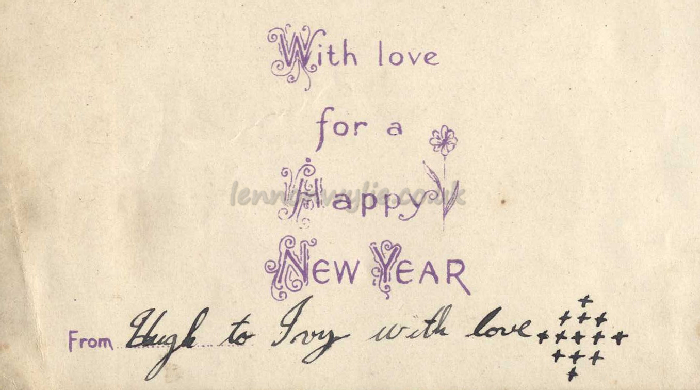 With love
for a
Happy
lennonwylie.co.uk
NEW YEAR
From Hugh to Ivy with love
+
+++
+++++
+++
+